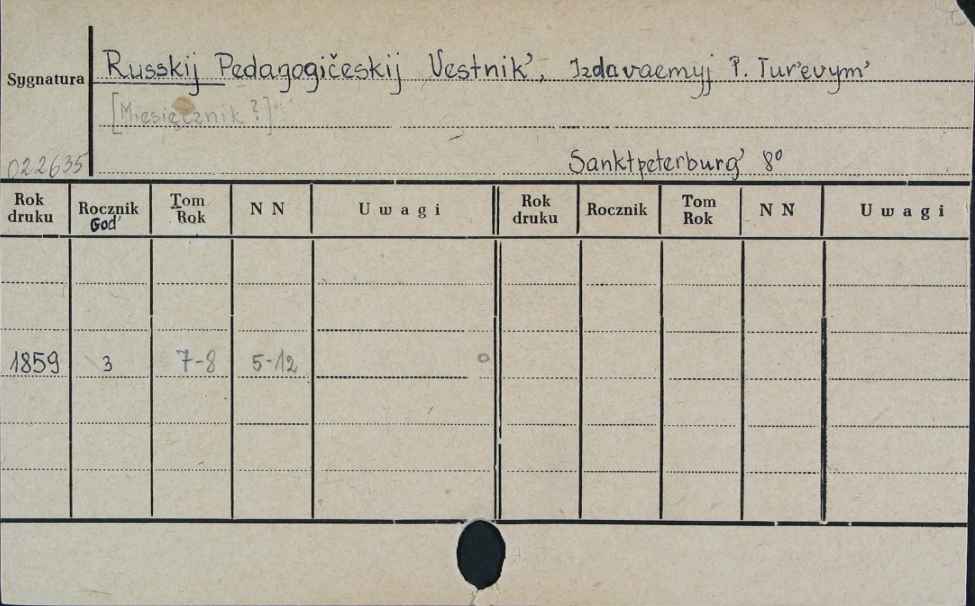 Sygnatura
Russkij Pedagogičeskij Vestnik', Izdavaemyj P. Tur'evym'
[Miesięcznik?]
022635
Sanktpeterburg' 8º
Rok druku Rocznik God' Tom Rok N N Uwagi Rok druku Rocznik Tom Rok N N Uwagi
1859 3 7-8 5-12